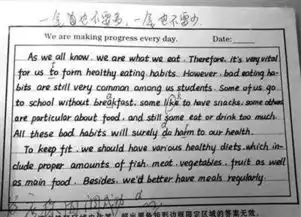 We are making progress every day. Date:
As we all know, we are what we eat. Therefore, it's very vital
for us to form healthy eating habits. However, bad eating ha-
bits are still very common among us students. Some of us go
to school without breakfast, some like to have snacks, some others
are particular about food, and still some eat or drink too much.
All these bad habits will surely do harm to our health.
To keep fit, we should have various healthy diets, which in-
clude proper amounts of fish, meat, vegetables, fruit as well
as main food. Besides, we'd better have meals regularly.